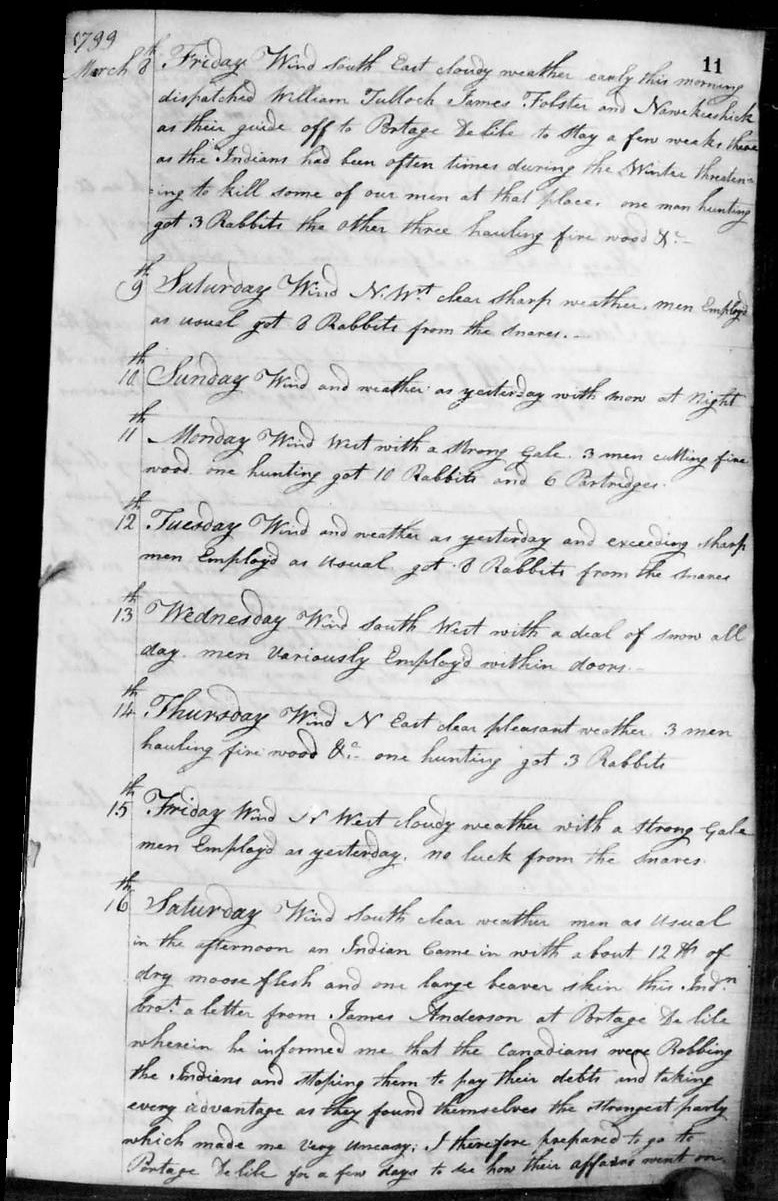 1799
11
March 8th Friday Wind South East cloudy weather early this morning
dispatched William Tulloch James Folster and Nawekeshick
as their guide off to Portage De lile to stay a few weaks there
as the Indians had been often times during the Winter threaten=
=ing to kill some of our men at that place. one man hunting
got 3 Rabbits the other three hauling fire wood &c.-
9th Saturday Wind N.Wt. clear sharp weather, men Employd
as usual got 8 Rabbits from the snares.-
10th Sunday Wind and weather as yesterday with snow at Night
11th Monday Wind West with a strong Gale. 3 men cutting fire
wood. one hunting got 10 Rabbits and 6 Partridges.
12th Tuesday Wind and weather as yesterday and exceeding sharp
men Employ'd as usual. got 8 Rabbits from the snares
13th Wednesday Wind South West with a deal of snow all
day. men Variously Employ'd within doors.-
14th Thursday Wind N East clear pleasant weather. 3 men
hauling fire wood &c.- one hunting got 3 Rabbits
15th Friday Wind N West cloudy weather with a strong Gale
men Employ'd as yesterday, no luck from the snares.
16th Saturday Wind South clear weather men as usual
in the afternoon an Indian Came in with about 12 lb of
dry moose flesh and one large beaver skin this Indn.
brot. a letter from James Anderson at Portage De lile
wherein he informed me that the Canadians were Robbing
the Indians and stoping them to pay their debts and taking
every advantage as they found themselves the strongest party
which made me Very uneasy; I therefore prepared to go to
Portage De lile for a few days to see how their affairs went on